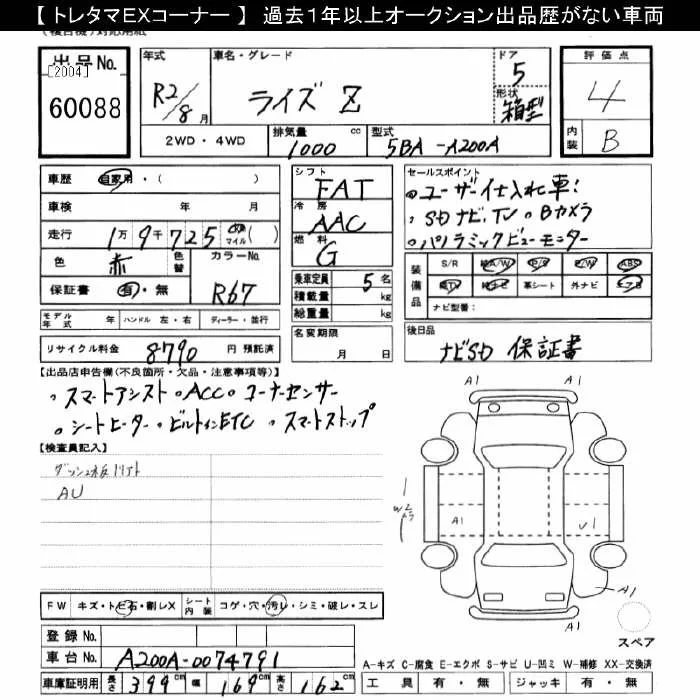 【トレタマEXコーナー】 過去1年以上オークション出品歴がない車両
出品No.
[2004]
60088
年式 車名・グレード ドア
R2/8月 ライズ Z 5
形状
箱型
評価点
4
内装 B
2WD・4WD 排気量 1000 cc 型式 5BA-A200A
車歴 自家用・( )
車検 年 月
走行 1万9千725 km マイル ( )
色 赤 色替 カラーNo.
保証書 有・無 R67
モデル年式 年 ハンドル 左・右 ディーラー・並行
リサイクル料金 8790 円 預託済
シフト FAT
冷房 AAC
燃料 G
乗車定員 5 名
積載量 kg
総重量 kg
名変期限
月 日
セールスポイント
ユーザー仕入れ車!
SDナビ、TV Bカメラ
パノラミックビューモニター
装備品 S/R 純A/W P/S P/W ABS
純TV 純ナビ 革シート 外ナビ エアB
ナビ型番:
後日品
ナビSD 保証書
【出品店申告欄(不良箇所・欠品・注意事項等)】
スマートアシスト ACC コーナーセンサー
シートヒーター ビルトインETC スマートストップ
【検査員記入】
AU
A1 A1
A1
A1
スペア
FW キズ・トビ石・割レX シート内装 コゲ・穴・汚レ・シミ・破レ・スレ
登録No.
車台No. A200A-0074791
車庫証明用 長さ 399 幅 169 高さ 162
A-キズ C-腐食 E-エクボ S-サビ U-凹ミ W-補修 XX-交換済
工具 有・無 ジャッキ 有・無